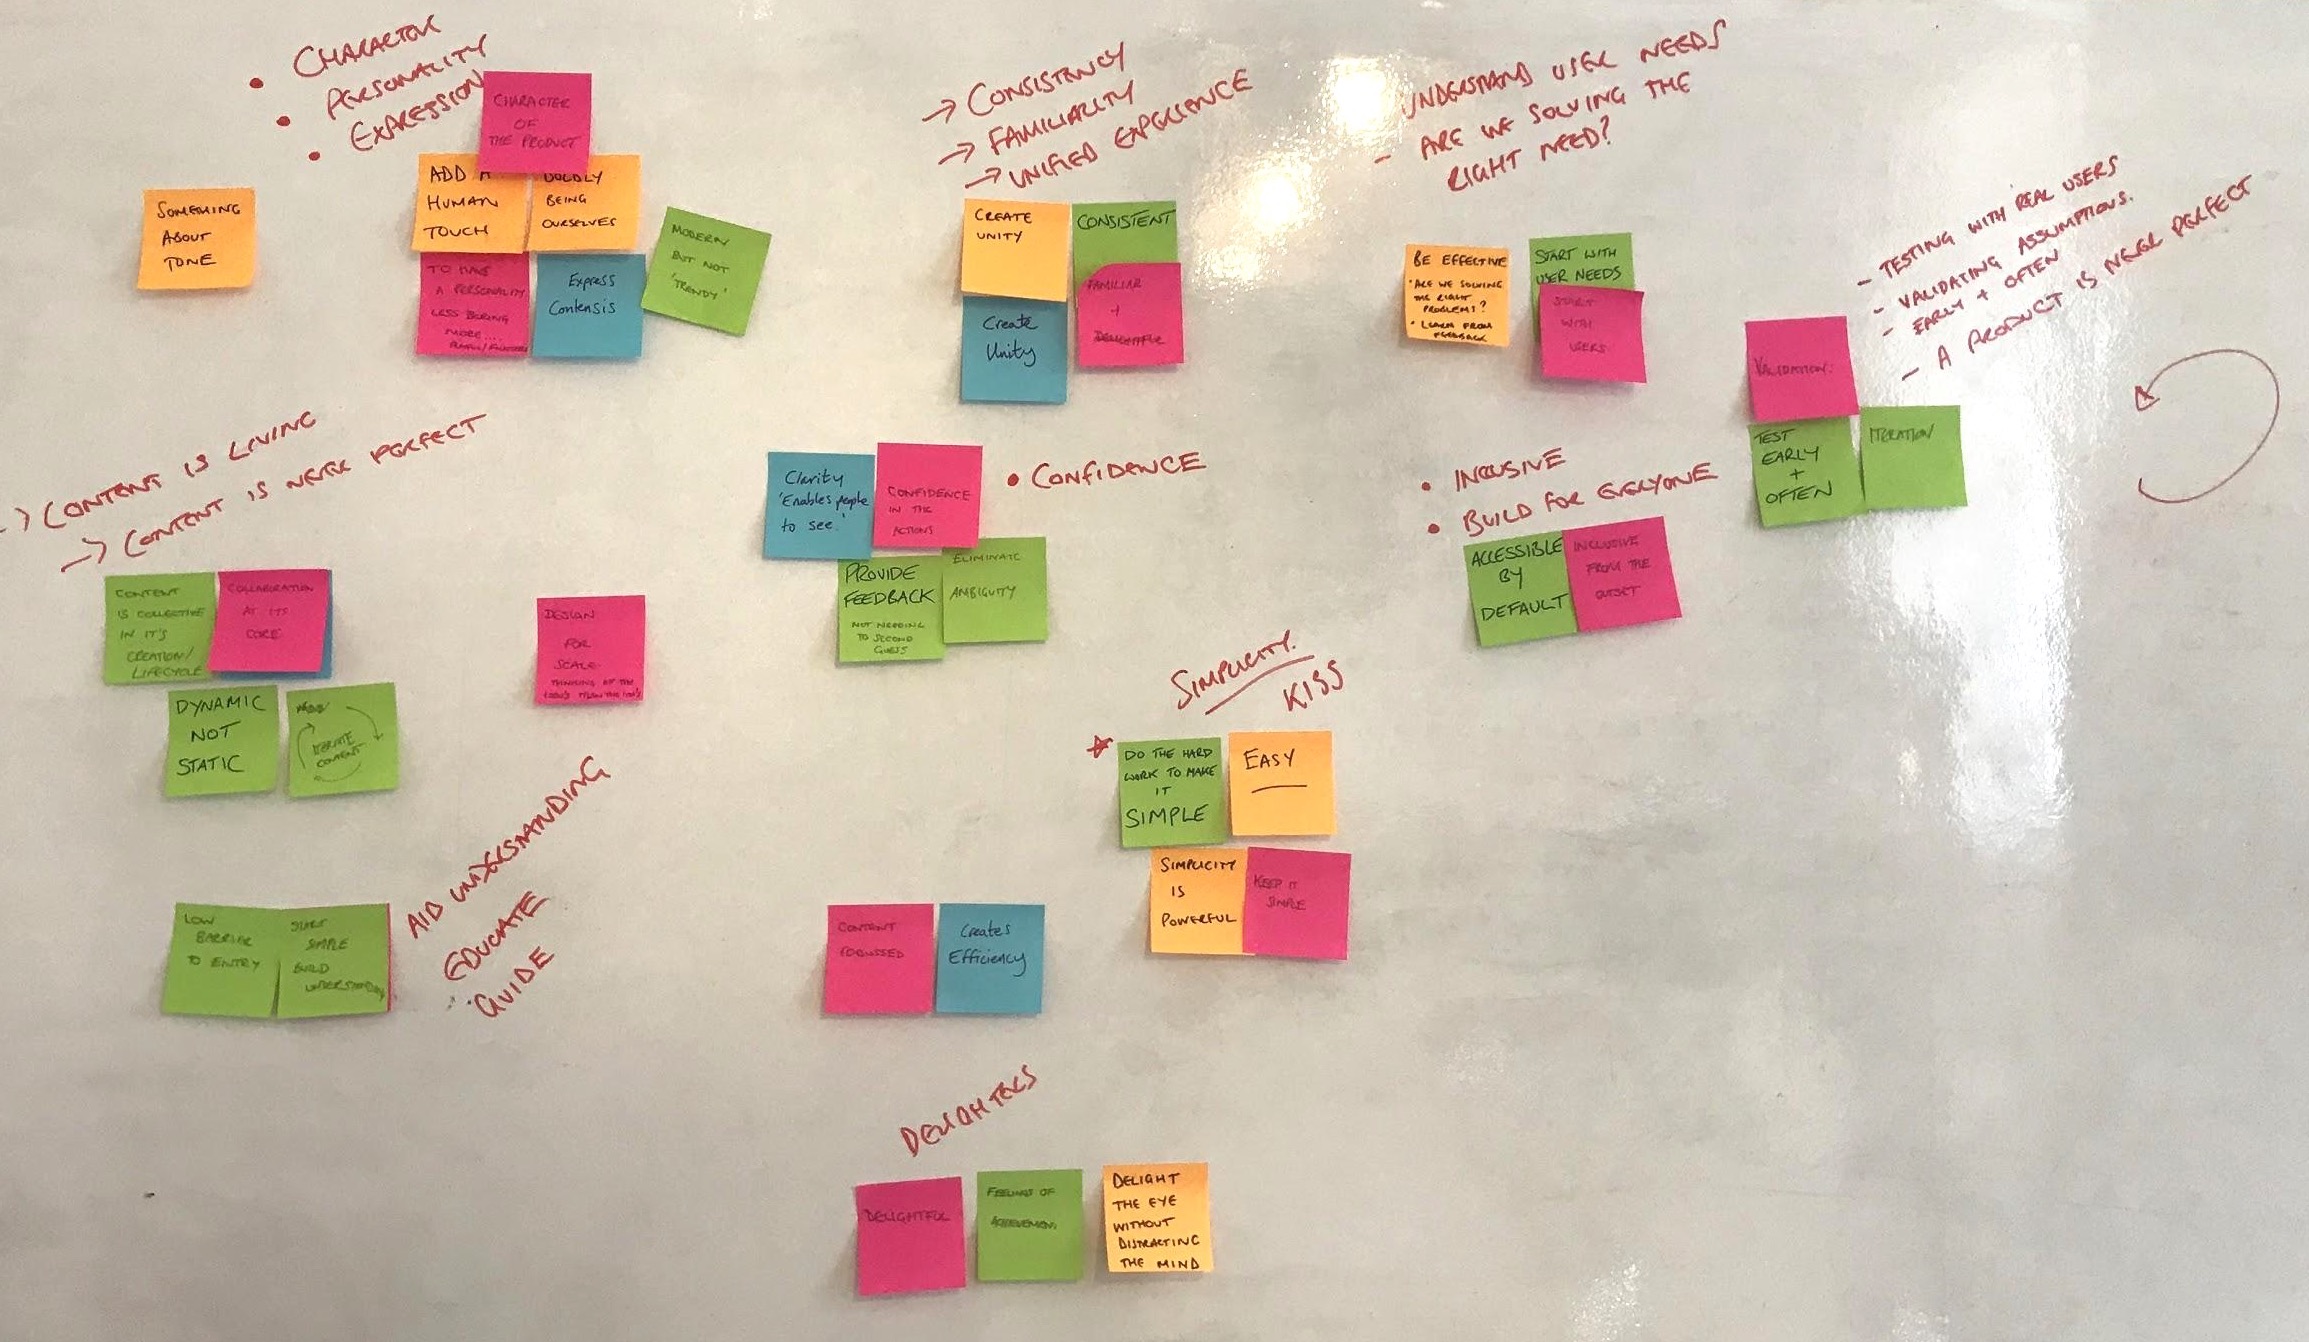 • CHARACTER
• PERSONALITY
• EXPRESSION
CHARACTER
OF
THE PRODUCT
SOMETHING
ABOUT
TONE
ADD A
HUMAN
TOUCH
BOLDLY
BEING
OURSELVES
TO HAVE
A PERSONALITY
LESS BORING
MORE....
Express
Contensis
MODERN
BUT NOT
'TRENDY'
→ CONSISTENCY
→ FAMILIARITY
→ UNIFIED EXPERIENCE
CREATE
UNITY
CONSISTENT
Create
Unity
FAMILIAR
+
DELIGHTFUL
UNDERSTAND USER NEEDS
- ARE WE SOLVING THE
RIGHT NEED?
BE EFFECTIVE
• ARE WE SOLVING
THE RIGHT
PROBLEMS?
• LEARN FROM
FEEDBACK
START WITH
USER NEEDS
START
WITH
USERS
- TESTING WITH REAL USERS
- VALIDATING ASSUMPTIONS.
- EARLY + OFTEN
- A PRODUCT IS NEVER PERFECT
VALIDATION.
TEST
EARLY
+
OFTEN
ITERATION
→ CONTENT IS LIVING
→ CONTENT IS NEVER PERFECT
CONTENT
IS COLLECTIVE
IN IT'S
CREATION/
LIFECYCLE
COLLABORATION
AT ITS
CORE
DYNAMIC
NOT
STATIC
ITERATE
CONTENT
DESIGN
FOR
SCALE
THINKING OF THE
Clarity
'Enables people
to see.'
CONFIDENCE
IN THE
ACTIONS
• CONFIDENCE
PROVIDE
FEEDBACK
NOT NEEDING
TO SECOND
GUESS
ELIMINATE
AMBIGUITY
• INCLUSIVE
• BUILD FOR EVERYONE
ACCESSIBLE
BY
DEFAULT
INCLUSIVE
FROM THE
OUTSET
SIMPLICITY.
KISS
DO THE HARD
WORK TO MAKE
IT
SIMPLE
EASY
SIMPLICITY
IS
POWERFUL
KEEP IT
SIMPLE
LOW
BARRIER
TO ENTRY
START
SIMPLE
BUILD
UNDERSTANDING
AID UNDERSTANDING
EDUCATE
GUIDE
CONTENT
FOCUSSED
Creates
Efficiency
DELIGHTERS
DELIGHTFUL
FEELINGS OF
ACHIEVEMENT
DELIGHT
THE EYE
WITHOUT
DISTRACTING
THE MIND